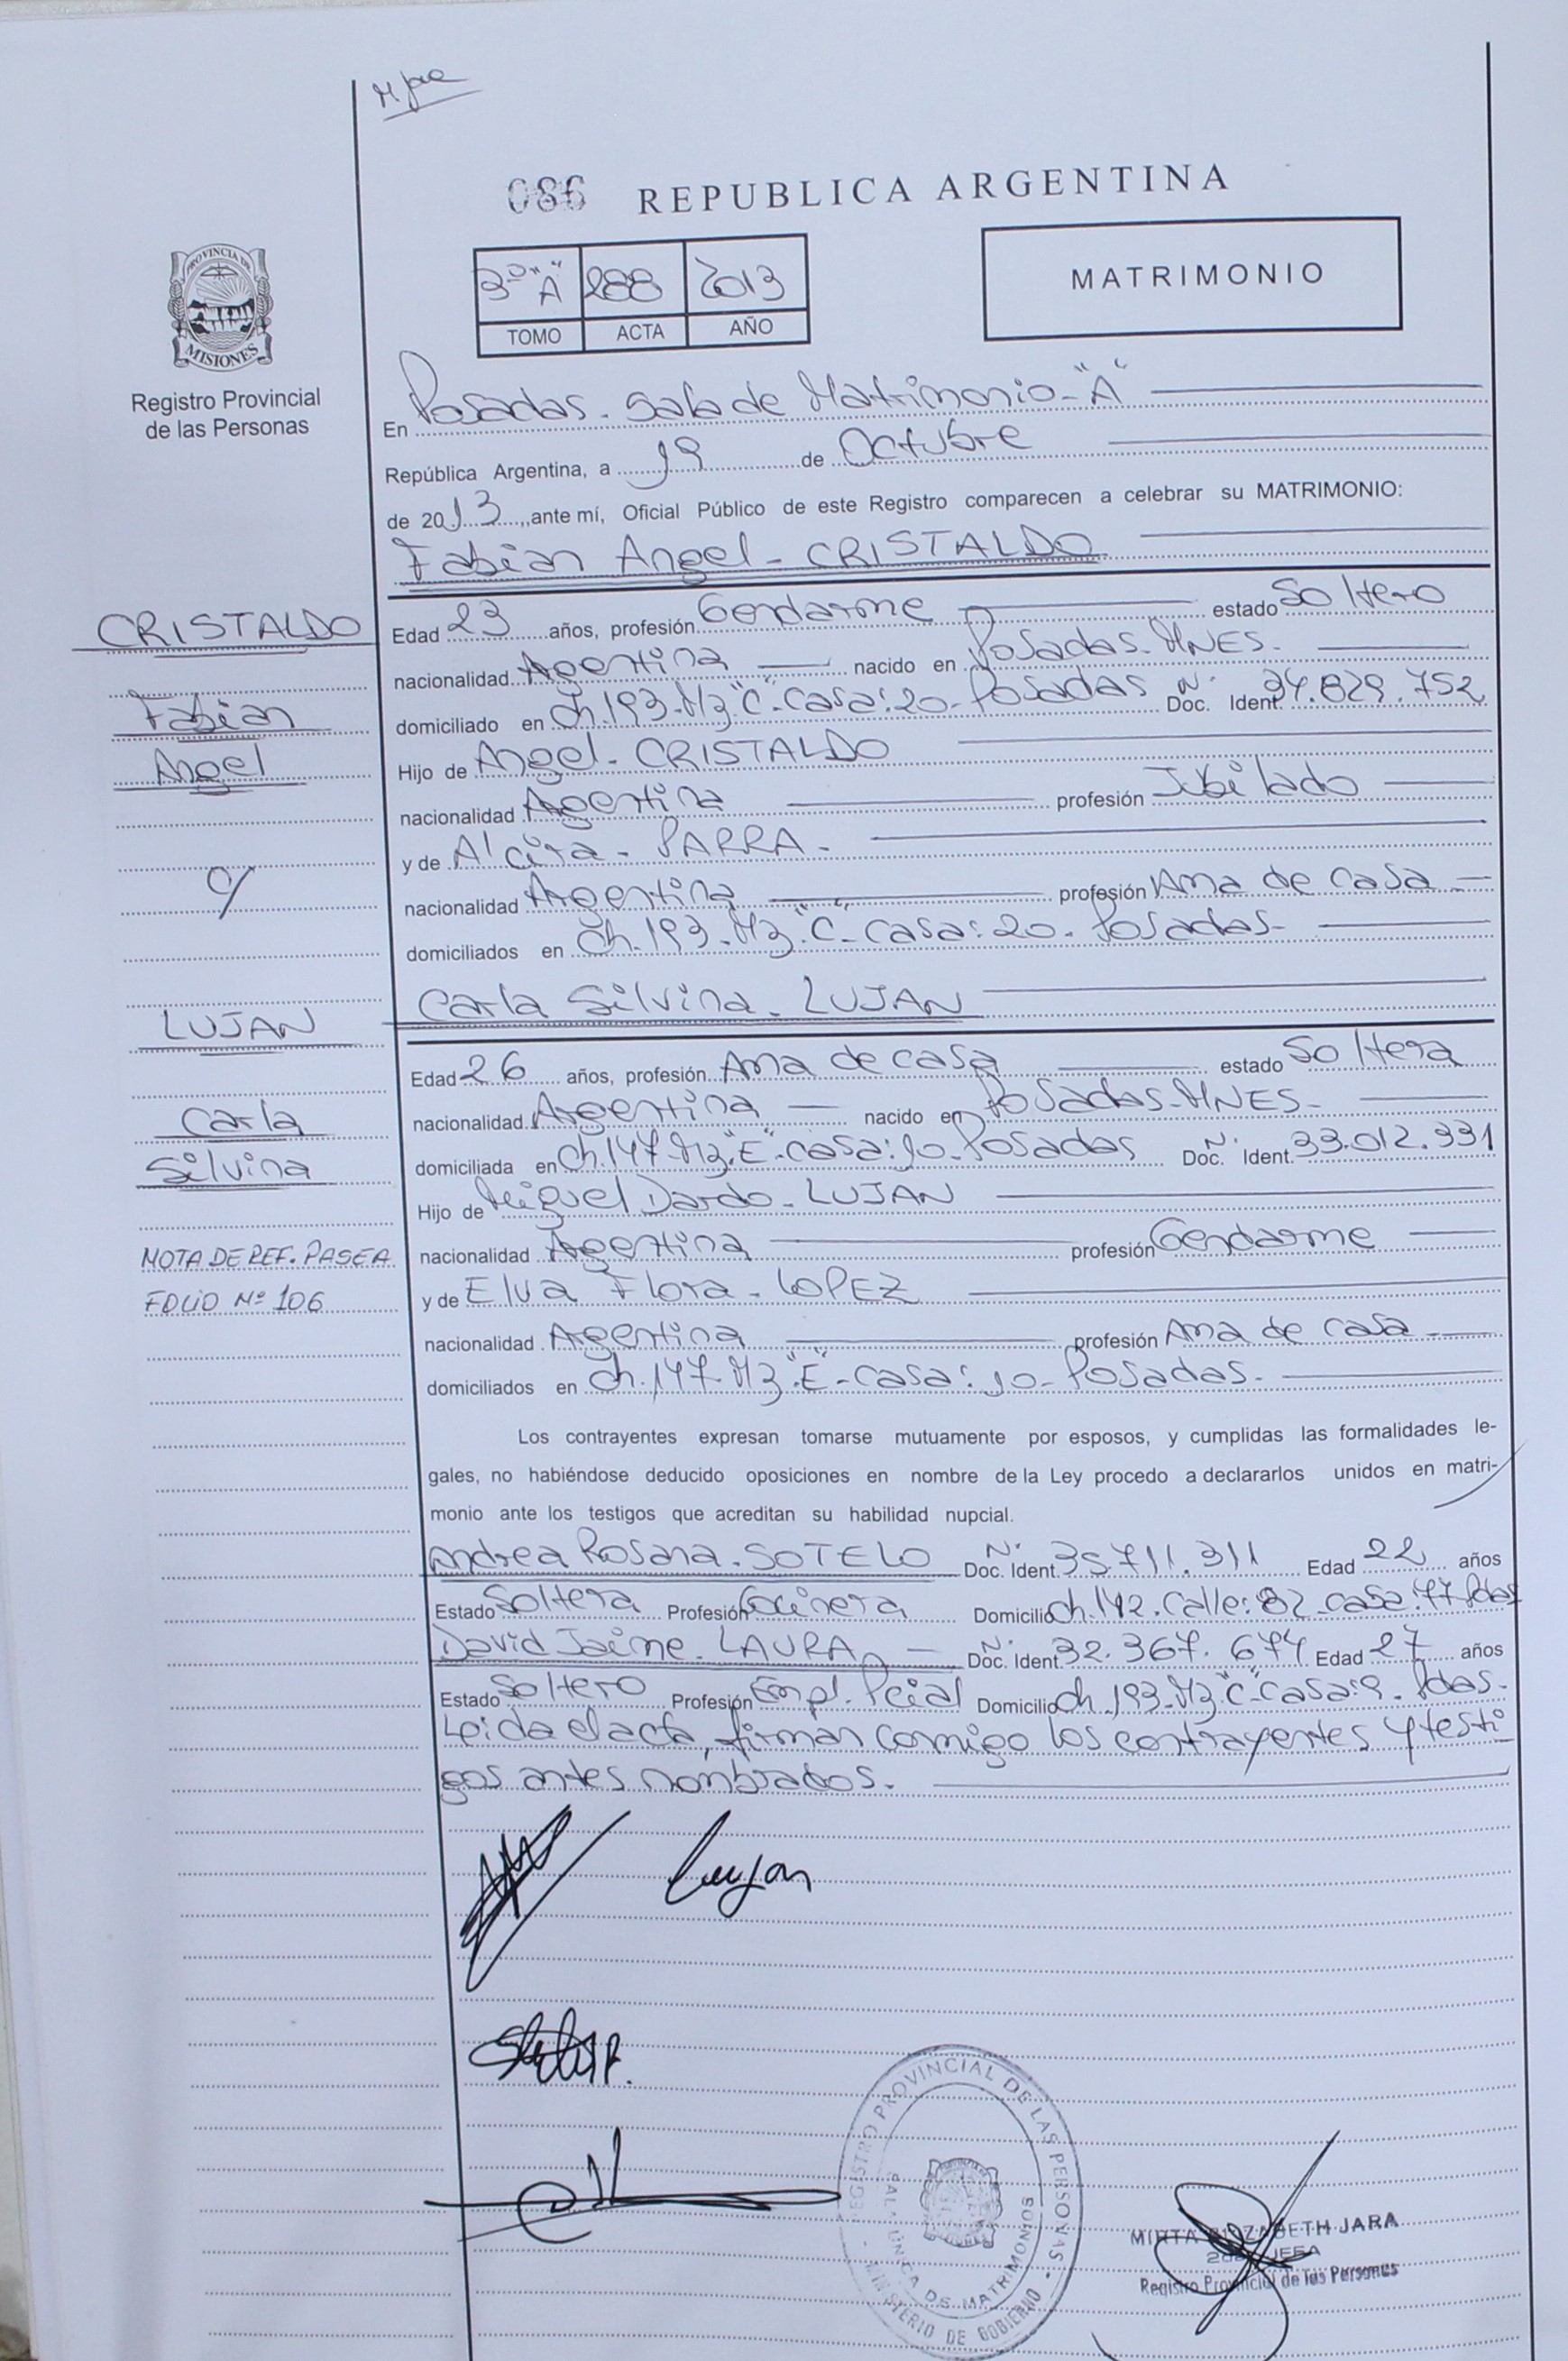 086 REPUBLICA ARGENTINA
PROVINCIA DE
MISIONES
Registro Provincial
de las Personas
3º "A" 288 2013
TOMO ACTA AÑO
MATRIMONIO
En Posadas - Sala de Matrimonio - "A"
República Argentina, a 19 de Octubre
de 2013, ante mí, Oficial Público de este Registro comparecen a celebrar su MATRIMONIO:
Fabian Angel - CRISTALDO
CRISTALDO
Fabian
Angel
c/
LUJAN
Carla
Silvina
NOTA DE REF. PASE A
FOLIO Nº 106
Edad 23 años, profesión Gendarme estado Soltero
nacionalidad Argentina nacido en Posadas - MNES.
domiciliado en Ch. 193 - Mz "C" - Casa: 20 - Posadas Doc. Nº Ident. 34.829.752
Hijo de Angel - CRISTALDO
nacionalidad Argentina profesión Jubilado
y de Alcira - PARRA -
nacionalidad Argentina profesión Ama de casa
domiciliados en Ch. 193 - Mz "C" - Casa: 20 - Posadas -
Carla Silvina - LUJAN
Edad 26 años, profesión Ama de casa estado Soltera
nacionalidad Argentina nacido en Posadas - MNES -
domiciliada en Ch. 147 - Mz "E" - casa: 10 - Posadas Doc. Nº Ident. 33.012.331
Hijo de Miguel Dardo - LUJAN
nacionalidad Argentina profesión Gendarme
y de Elva Flora - LOPEZ
nacionalidad Argentina profesión Ama de casa
domiciliados en Ch. 147 - Mz "E" - Casa: 10 - Posadas -
Los contrayentes expresan tomarse mutuamente por esposos, y cumplidas las formalidades le-
gales, no habiéndose deducido oposiciones en nombre de la Ley procedo a declararlos unidos en matri-
monio ante los testigos que acreditan su habilidad nupcial.
Andrea Rosana - SOTELO Doc. Nº Ident. 35.711.311 Edad 22 años
Estado Soltera Profesión Cocinera Domicilio Ch. 142 - Calle: 82 - casa: 77 Pdas
David Jaime - LAURA Doc. Nº Ident. 32.367.674 Edad 27 años
Estado Soltero Profesión Empl. Pcial Domicilio Ch. 193 - Mz "C" - Casa: 9 - Pdas -
Leida el acta, firman conmigo los contrayentes y testi
gos antes nombrados.
Lujan
REGISTRO PROVINCIAL DE LAS PERSONAS
SALA ÚNICA DE MATRIMONIOS
- MINISTERIO DE GOBIERNO -
MIRTA ELIZABETH JARA
JEFA
Registro Provincial de las Personas